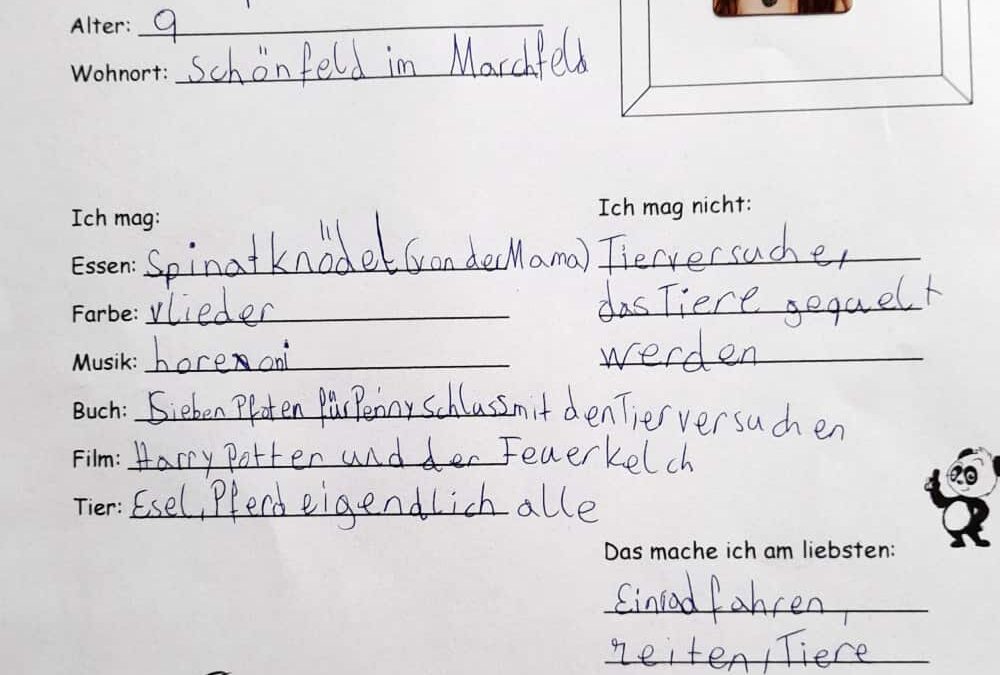 Alter: 9
Wohnort: Schönfeld im Marchfeld
Ich mag:
Ich mag nicht:
Essen: Spinatknödel (von der Mama)
Tierversuche,
Farbe: vlieder
das Tiere gequelt
Musik: horexoni
werden
Buch: Sieben Pfoten für Penny schluss mit den Tierversuchen
Film: Harry Potter und der Feuerkelch
Tier: Esel, Pferd eigendlich alle
Das mache ich am liebsten:
Einrad fahren,
reiten, Tiere